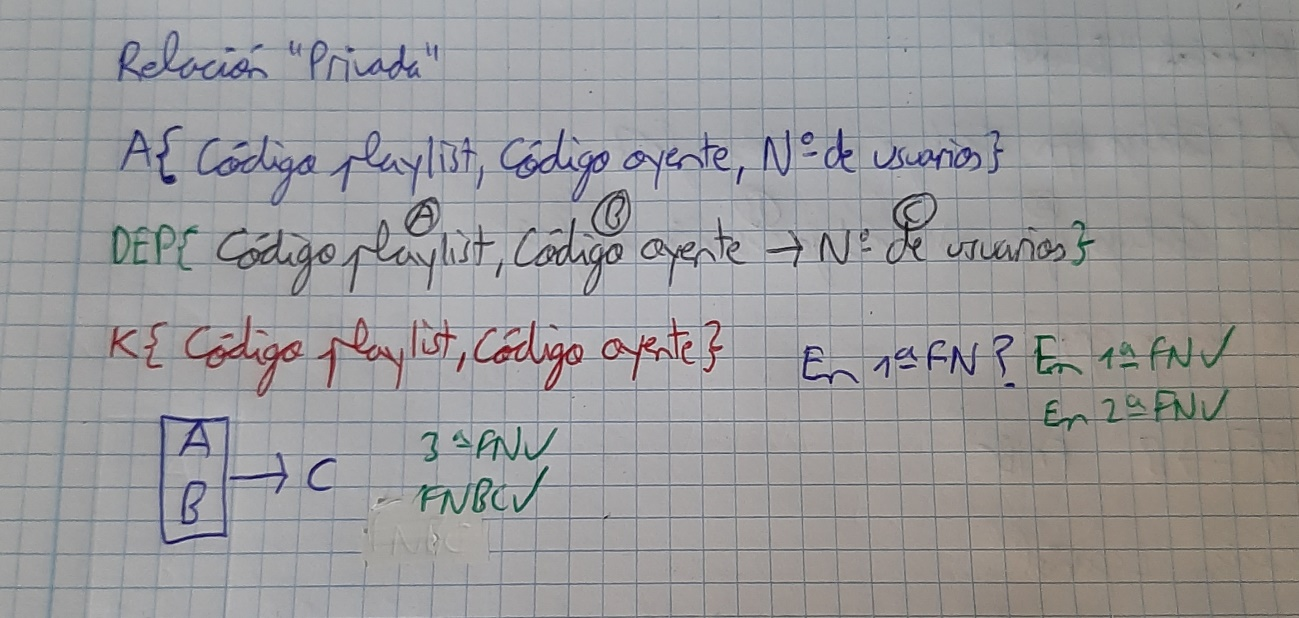 Relación "Privada"
A{ Código playlist, Código oyente, Nº de usuarios}
A B C
DEP{ Código playlist, Código oyente → Nº de usuarios}
K{ Código playlist, Código oyente}
En 1ª FN? En 1ª FN✓
En 2ª FN✓
A
B
→ C
3ª FN✓
FNBC✓